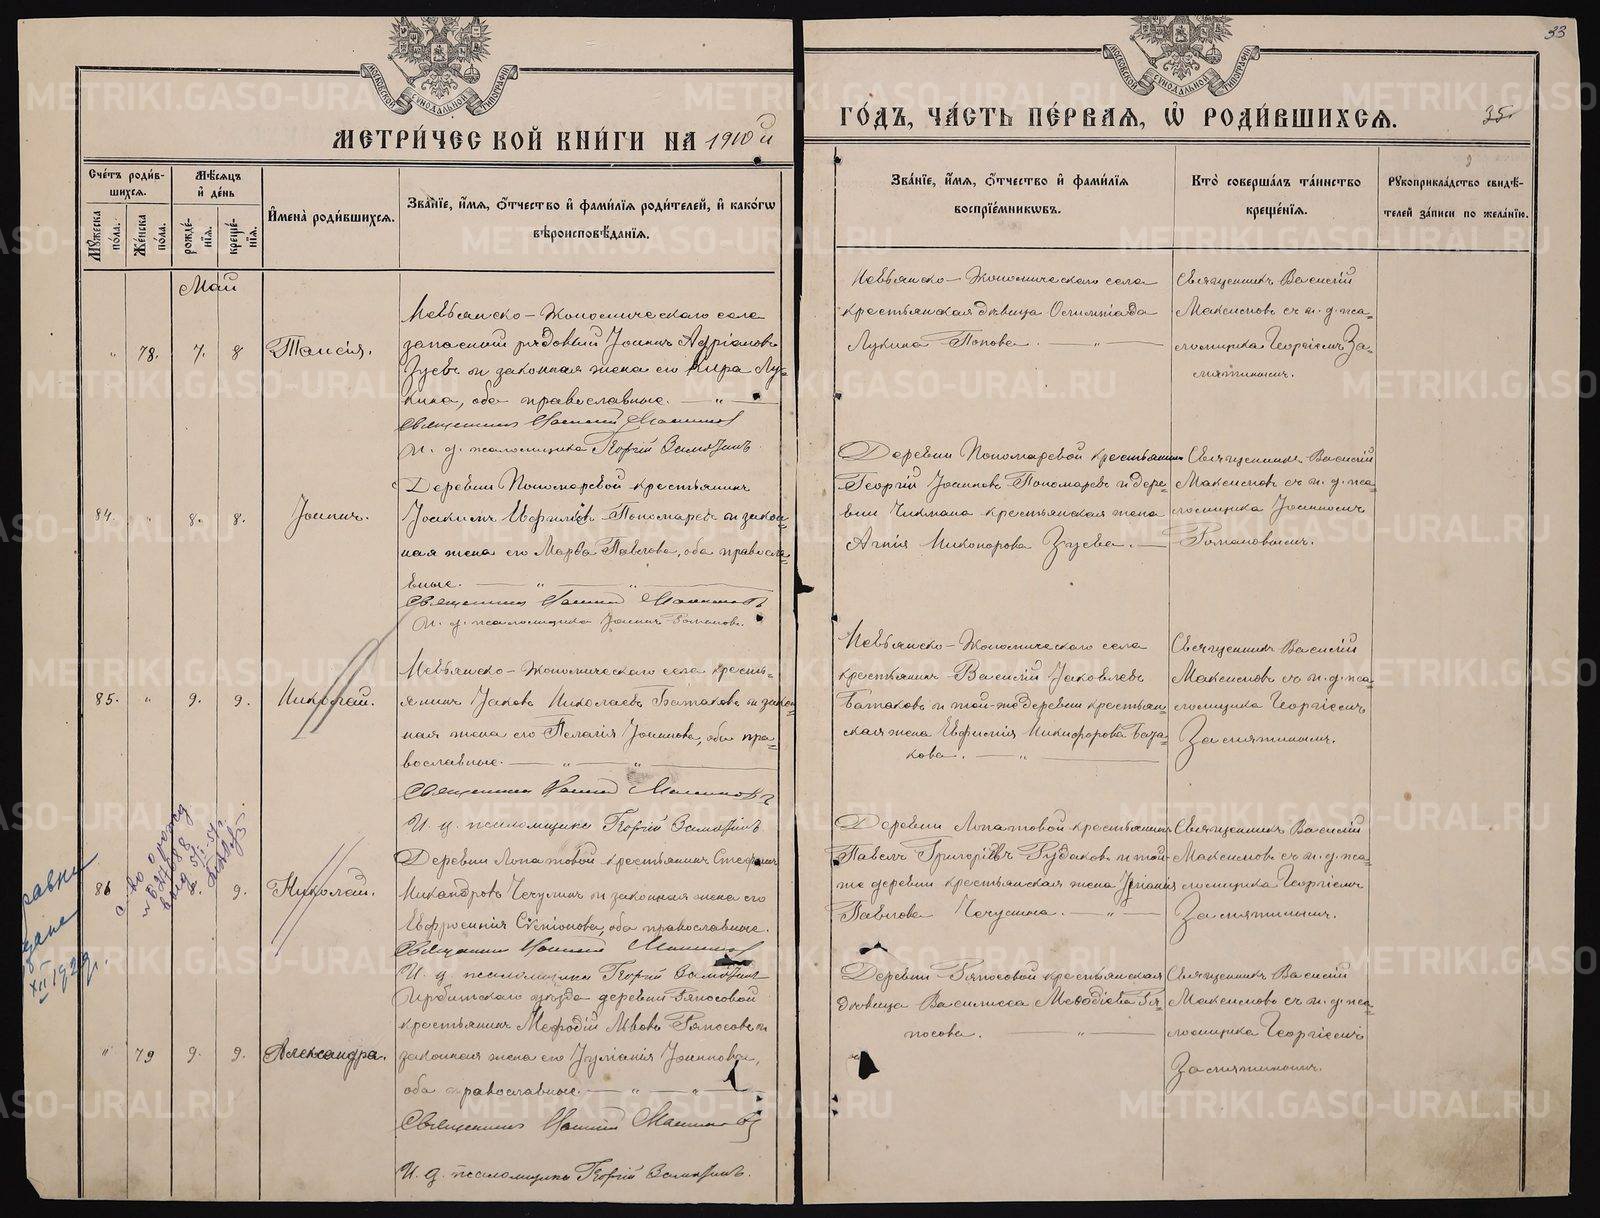 МЕТРИ́ЧЕСКОЙ КНИ́ГИ НА 1910й
ГО́ДЪ, ЧА́СТЬ ПЕ́РВАЯ, Ѡ РОДИ́ВШИХСЯ.
33
35
Сче́тъ роди́в-
шихся.
Мѣ́сяцъ
и де́нь
Му́жеска по́ла.
Же́нска по́ла.
рожде́-
нїя.
креще́-
нїя.
И҆мена̀ роди́вшихся.
Зва́нїе, и҆́мя, ѻ҆́тчество и҆ фами́лїя роди́телей, и҆ како́гѡ
вѣроисповѣ́данїя.
Зва́нїе, и҆́мя, ѻ҆́тчество и҆ фами́лїя
воспрїе́мникѡвъ.
Кто̀ соверша́лъ та́инство
креще́нїя.
Рукоприкла́дство свидѣ́-
телей за́писи по жела́нїю.
Май
" 78. 7. 8 Таисія.
Невьянско-Экономическаго села
запасный рядовый Іоаннъ Адріановъ
Зуевъ и законная жена его Кира Лу-
кина, оба православные. — " —
Священникъ Василій Максимовъ
И. д. псаломщика Георгій Замятинъ
Невьянско-Экономическаго села
крестьянская дѣвица Олимпіада
Лукина Попова. — " —
Священникъ Василій
Максимовъ съ и. д. пса-
ломщика Георгіемъ За-
мятинымъ.
84. " 8. 8. Іоаннъ.
Деревни Пономаревой крестьянинъ
Іоакимъ Пономаревъ и закон-
ная жена его Марѳа Павлова, оба правосла-
вные. — " — " —
Священникъ Василій Максимовъ
И. д. псаломщика Іоаннъ Романовъ.
Деревни Пономаревой крестьянинъ
Георгій Іоакимовъ Пономаревъ и дере-
вни Чикмана крестьянская жена
Агнія Никонорова Зуева. —
Священникъ Василій
Максимовъ съ и. д. пса-
ломщика Іоанномъ
Романовымъ.
85. " 9. 9. Николай.
Невьянско-Экономическаго села кресть-
янинъ Іаковъ Николаевъ Батаковъ и закон-
ная жена его Пелагія Іоаннова, оба пра-
вославные. — " — " —
Священникъ Василій Максимовъ
И. д. псаломщика Георгій Замятинъ
Невьянско-Экономическаго села
крестьянинъ Василій Іаковлевъ
Батаковъ и той-же деревни крестьян-
ская жена Евфимія Никифорова Бата-
кова. — " —
Священникъ Василій
Максимовъ съ и. д. пса-
ломщика Георгіемъ
Замятинымъ.
86 9. Николай.
Деревни Лопатовой крестьянинъ Стефанъ
Никандровъ Чечулинъ и законная жена его
Евфросинія Сѵмеонова, оба православные.
Священникъ Василій Максимовъ
И. д. псаломщика Георгій Замятинъ
Деревни Лопатовой крестьянинъ
Павелъ Григоріевъ Рудаковъ и той-
же деревни крестьянская жена
Павлова Чечулина. — " —
Священникъ Василій
Максимовъ съ и. д. пса-
ломщика Георгіемъ
Замятинымъ.
XII 1929г.
" 79 9. 9. Александра.
Ирбитскаго уѣзда деревни Ряпосовой
крестьянинъ Меѳодій Львовъ Ряпосовъ и
законная жена его Іуліанія Іоаннова,
оба православные. — " — " —
Священникъ Василій Максимовъ
И. д. псаломщика Георгій Замятинъ.
Деревни Ряпосовой крестьянская
дѣвица Василисса Меѳодіева Ря-
посова. — " —
Священникъ Василій
Максимовъ съ и. д. пса-
ломщика Георгіемъ
Замятинымъ.
METRIKI.GASO-URAL.RU